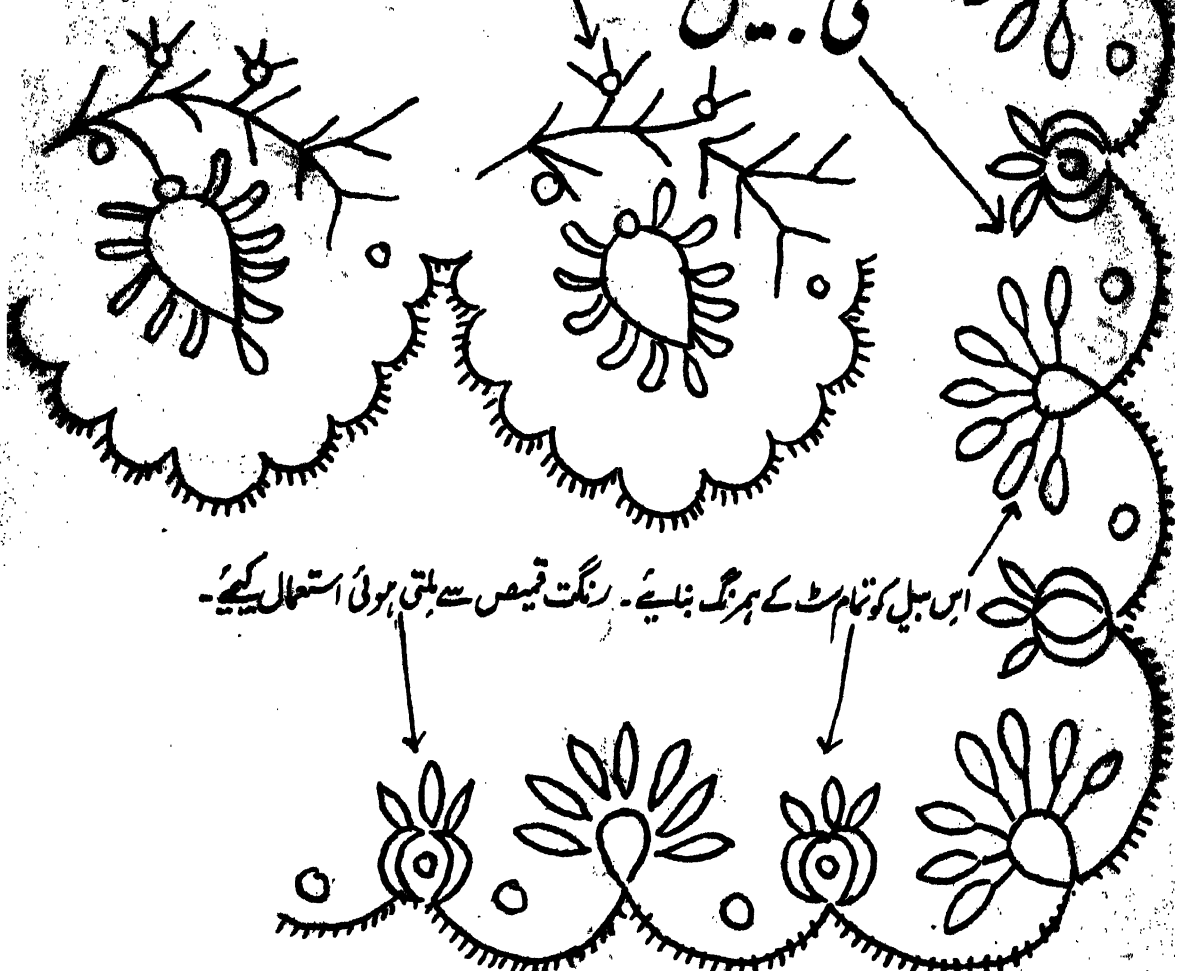 اس بیل کو تمام سٹ کے ہمرنگ بنایئے ۔ رنگت قمیص سے ملتی ہوئی استعمال کیجئے ۔